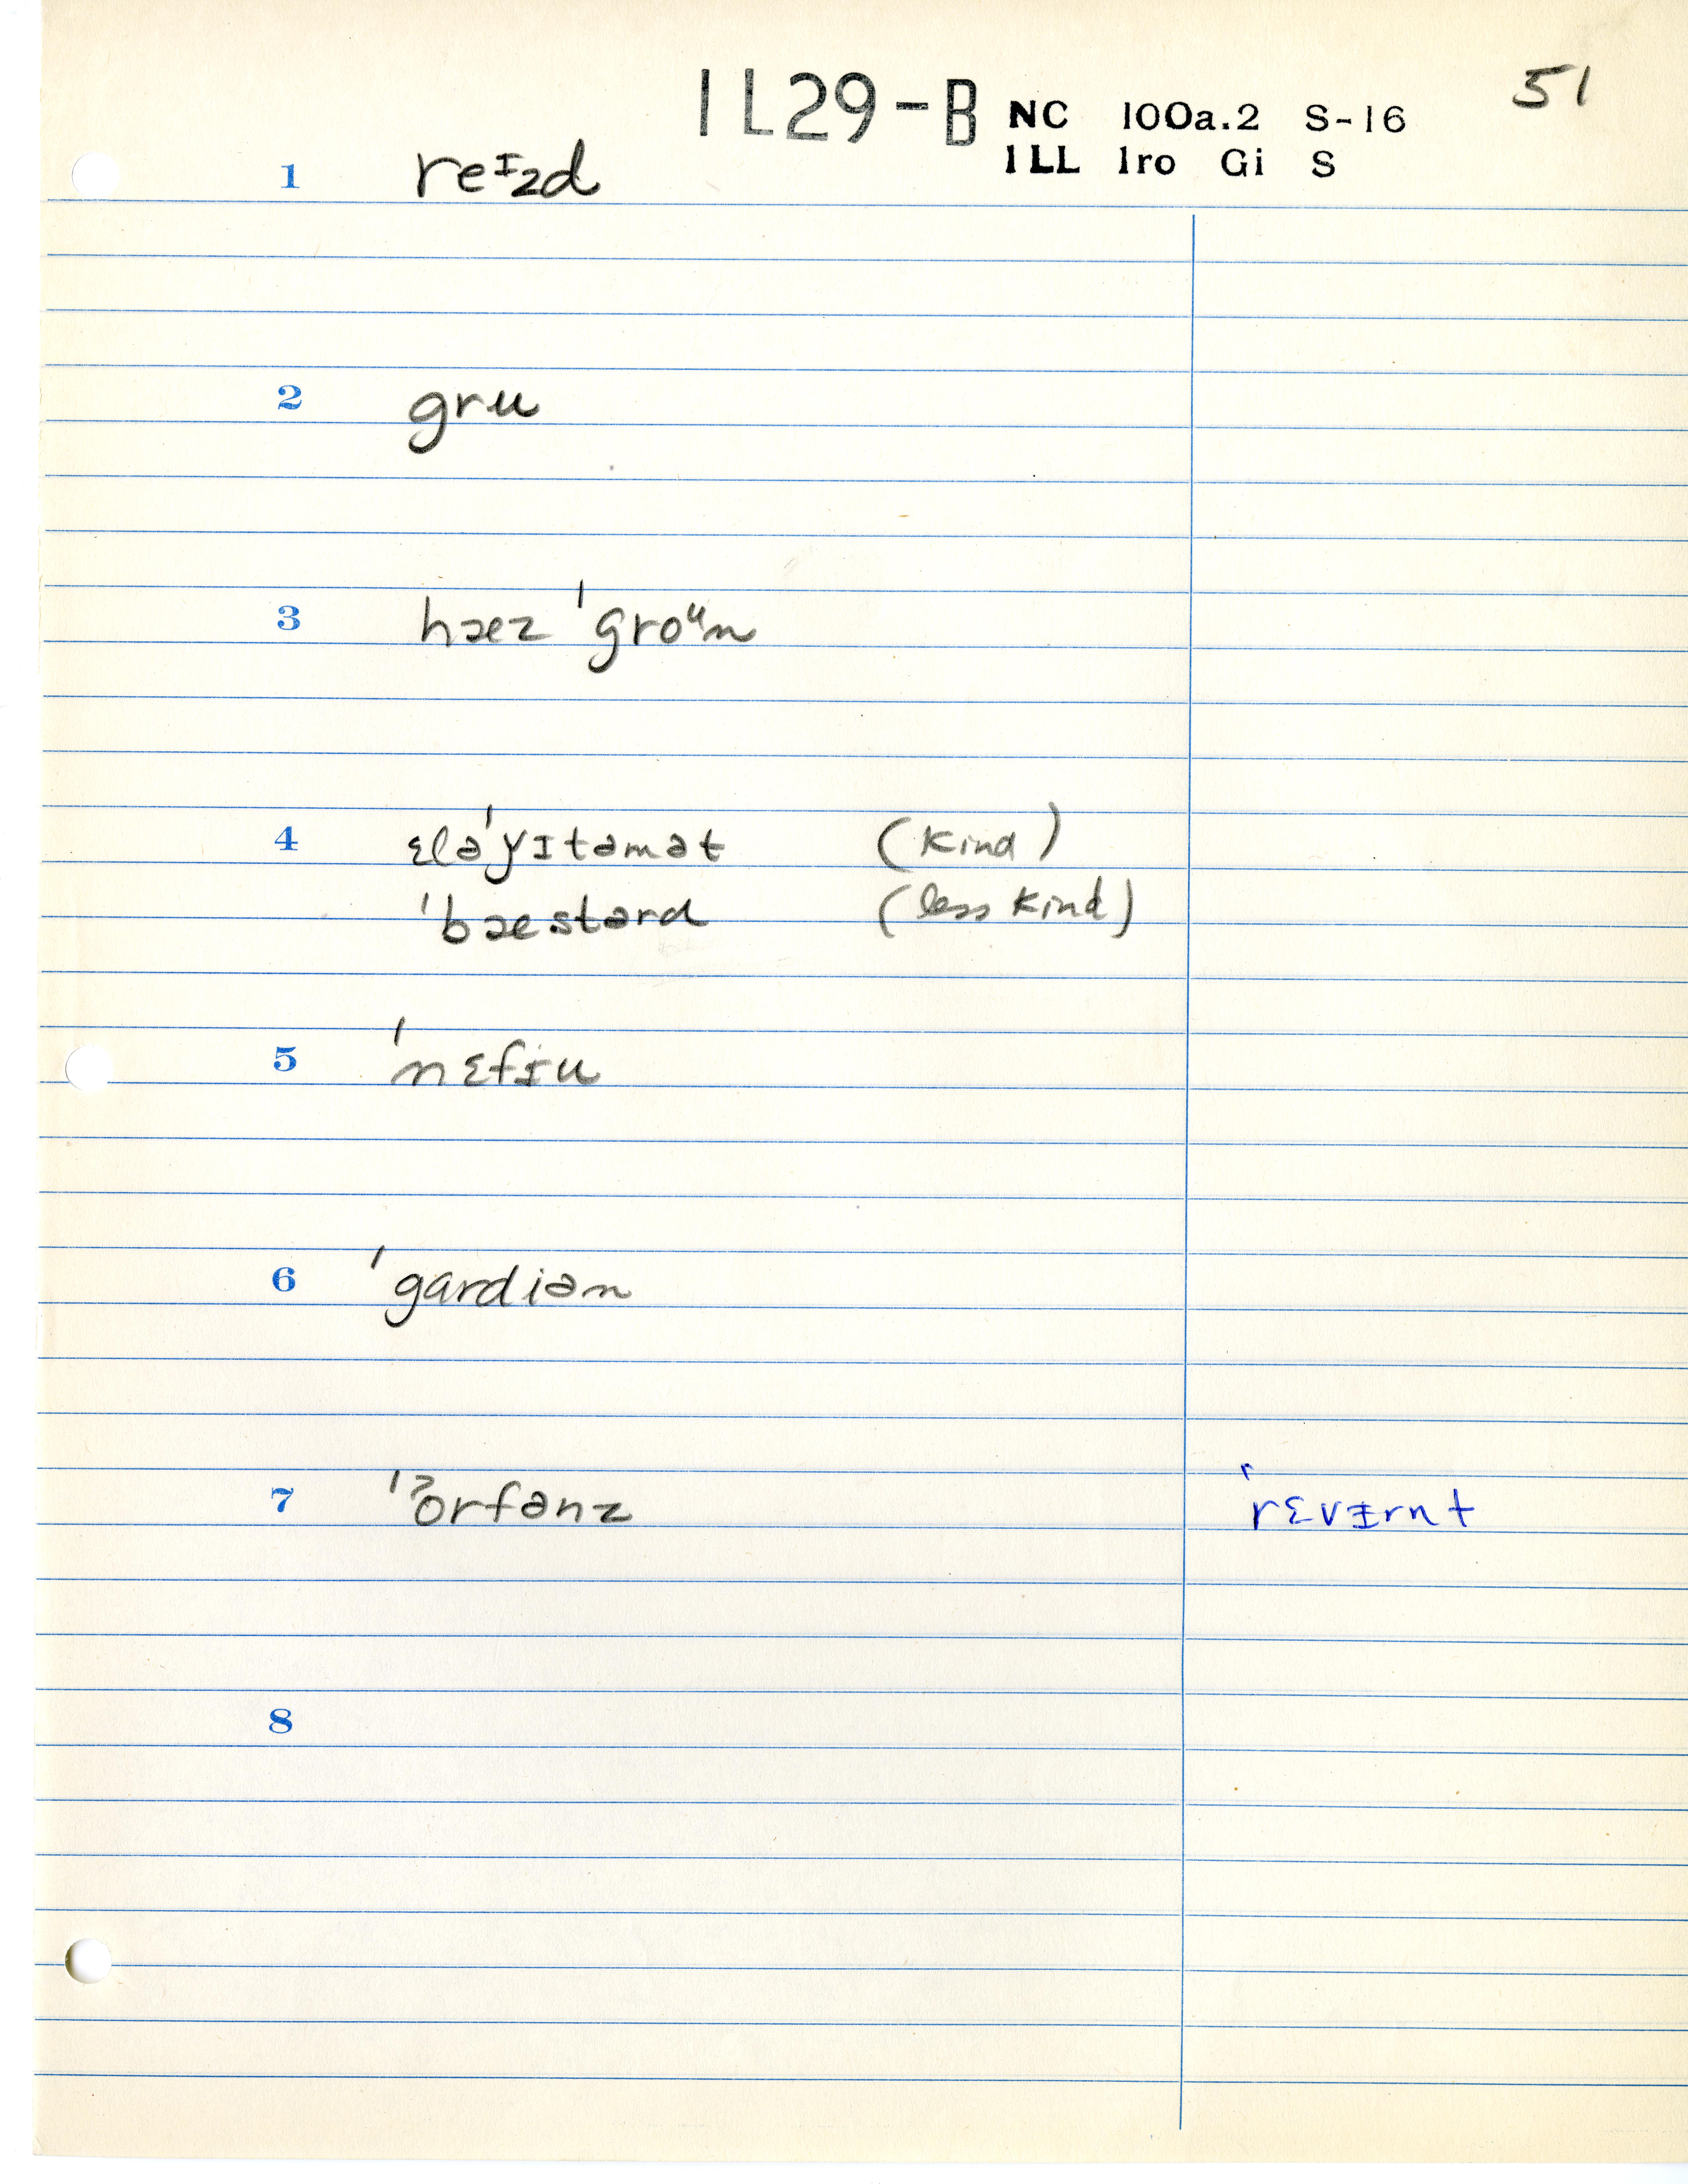 IL29-B NC 100a.2 S-16 51
ILL Iro Gi S
1 reᶦzd
2 gru
3 hæz ˈgroᵘn
4 ɛləˈyɪtəmət (kind)
ˈbæstərd (less kind)
5 ˈnɛfɪu
6 ˈgardiən
7 ˈɔrfənz ˈrɛvɪrnt
8